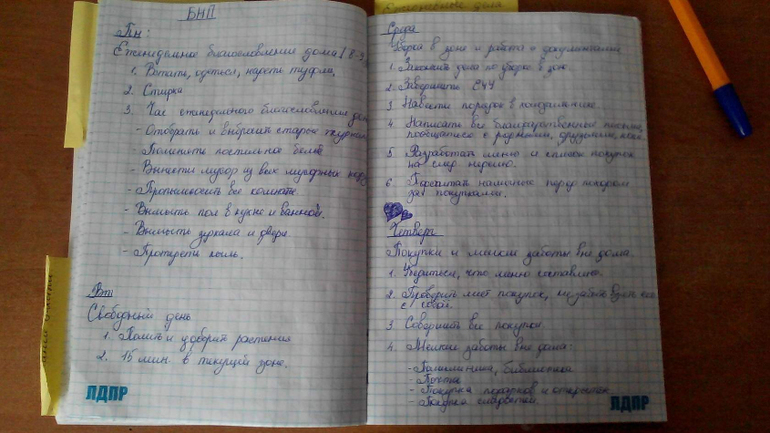 БНП
Пн:
Еженедельное благословение дома
1. Встать, одеться, надеть туфли.
2. Стирка
3. Час еженедельного благословения
- Отобрать и выбросить старые журналы
- Поменять постельное белье
- Вынести мусор из всех мусорных
- Пропылесосить все комнаты.
- Вымыть пол в кухне и ванной.
- Вымыть зеркала и двери
- Протереть пыль.
Вт:
Свободный день
1. Полить и удобрить растения
2. 15 мин. в текущей зоне.
ЛДПР
дела
Среда
Уборка в зоне и работа с документами
1. дела по уборке в зоне.
2. Завершить
3. Навести порядок в холодильнике.
4. Написать все благодарственные письма,
пообщаться с родными, друзьями,
5. Разработать меню и список покупок
на след. неделю.
6. наличные перед походом
за покупками.
Четверг
Покупки и мелкие заботы вне дома.
1. Убедиться, что меню составлено.
2. Проверить лист покупок, не забыть взять его
с собой.
3. Совершить все покупки
4. Мелкие заботы вне дома:
- Поликлиника, библиотека
- Почта
- Покупка подарков и открыток
- Покупка
ЛДПР